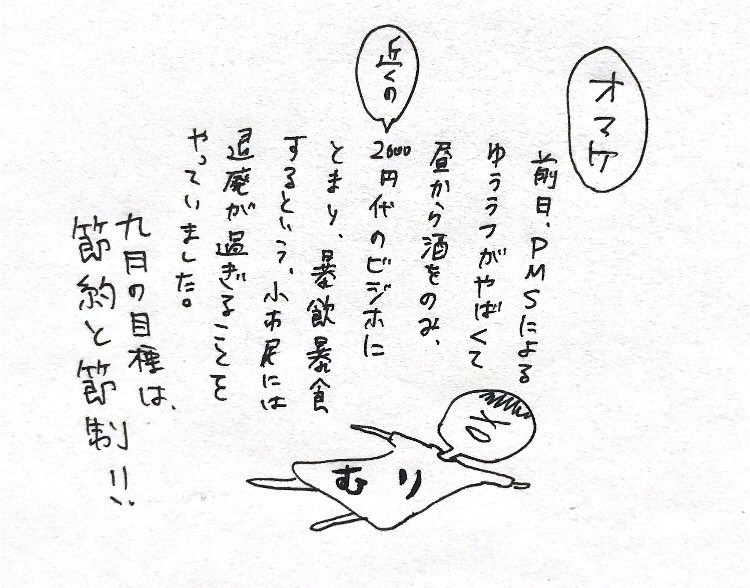 オマケ
前日、PMSによる
ゆううつがやばくて
昼から酒をのみ、
近くの
2000円代のビジホに
とまり、暴飲暴食
するという、小市民には
退廃が過ぎることを
やっていました。
九月の目標は、
節約と節制!!
むり